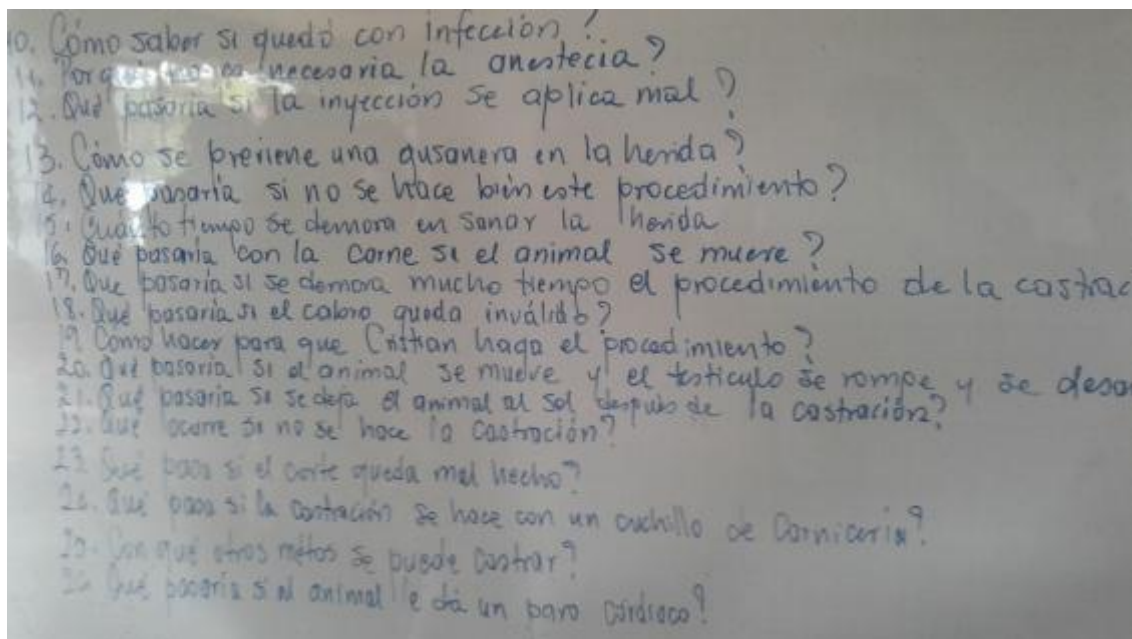 10. Cómo saber si quedó con infección?
11. Por qué no es necesaria la anestecia?
12. Qué pasaria si la inyección se aplica mal?
13. Cómo se previene una gusanera en la herida?
14. Qué pasaria si no se hace bien este procedimiento?
15. Cuánto tiempo se demora en sanar la herida
16. Qué pasaria con la carne si el animal se muere?
17. Que pasaria si se demora mucho tiempo el procedimiento de la castrac
18. Qué pasaria si el cabro queda inválido?
19. Como hacer para que Cristhian haga el procedimiento?
20. Qué pasaria si el animal se mueve y el testiculo se rompe y se desa
21. Qué pasaria si se deja el animal al sol después de la castración?
22. Qué ocurre si no se hace la castración?
23. Qué pasa si el corte queda mal hecho?
24. Qué pasa si la castración se hace con un cuchillo de Carniceria?
25. Con qué otros métos se puede castrar?
26. Qué pasaria si al animal le dá un paro cardiaco?